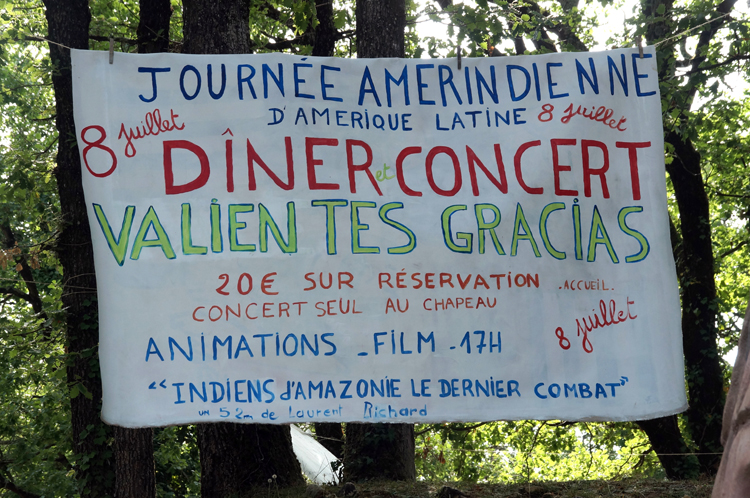 JOURNÉE AMERINDIENNE
D'AMERIQUE LATINE 8 juillet
8 juillet
DÎNER et CONCERT
VALIENTES GRACIAS
20€ SUR RÉSERVATION .ACCUEIL.
CONCERT SEUL AU CHAPEAU
8 juillet
ANIMATIONS - FILM - 17H
"INDIENS d'AMAZONIE LE DERNIER COMBAT"
un 52m de Laurent Richard